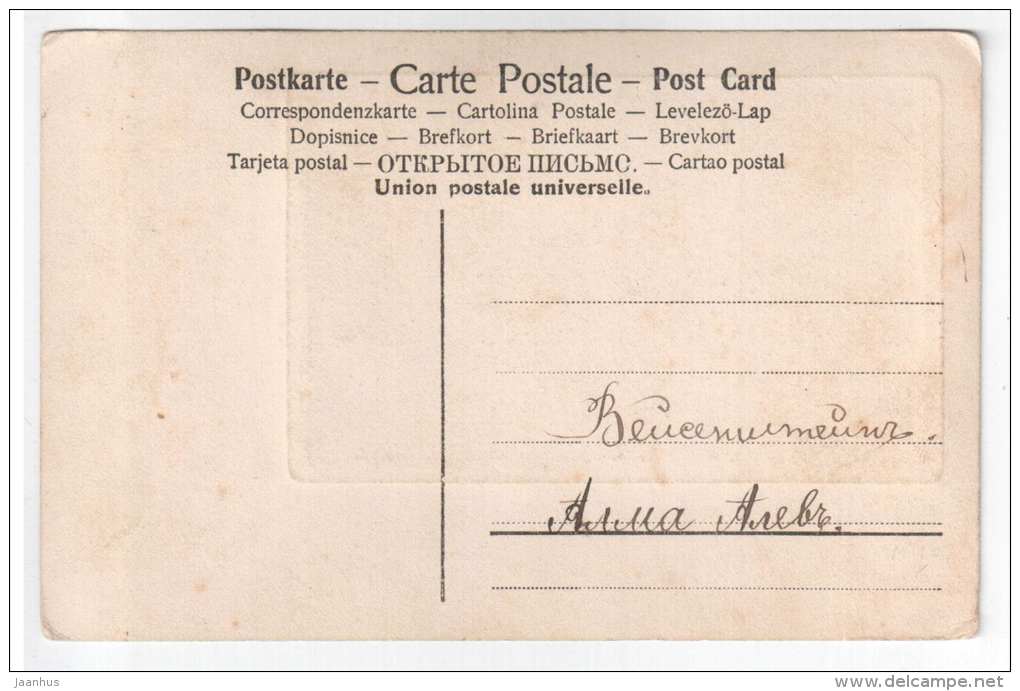 Postkarte – Carte Postale – Post Card
Correspondenzkarte — Cartolina Postale — Levelező-Lap
Dopisnice — Brefkort — Briefkaart — Brevkort
Tarjeta postal — ОТКРЫТОЕ ПИСЬМС. — Cartao postal
Union postale universelle.
Вейсенштейнъ.
Алма Алевъ.
jaanhus
delcampe.net